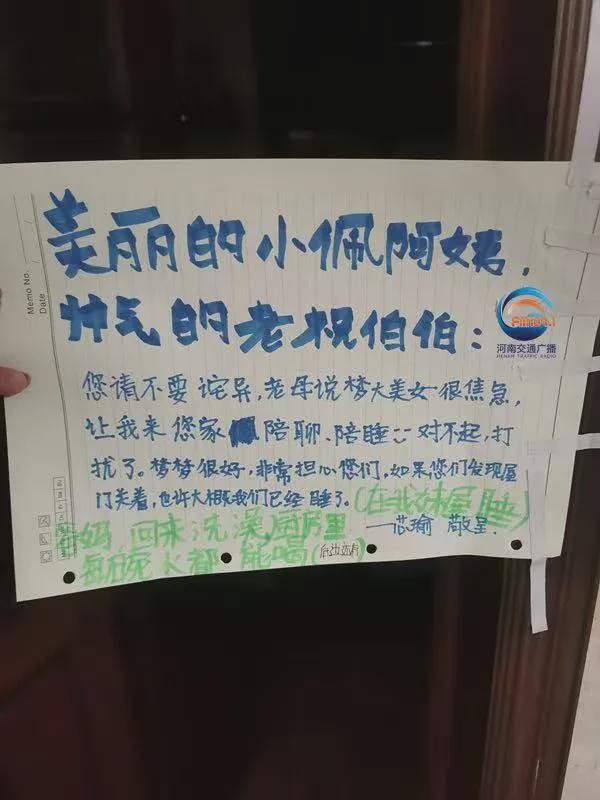 美丽的小佩阿姨，
帅气的老祝伯伯：
您请不要诧异，老母说梦大美女很焦急，
让我来您家陪聊、陪睡 对不起，打
扰了。梦梦很好，非常担心您们，如果您们发现屋
门关着，也许大概我们已经睡了。(在我妹屋睡)
—芯瑜 敬呈.
妈 回来洗澡，厨房里
每碗水都能喝(
Memo No.
Date
FM104.1
河南交通广播
HENAN TRAFFIC RADIO